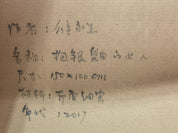 作者：
名称：抱银鼠的女人
尺寸：150×100cm
材料：布面油画
年代：2017